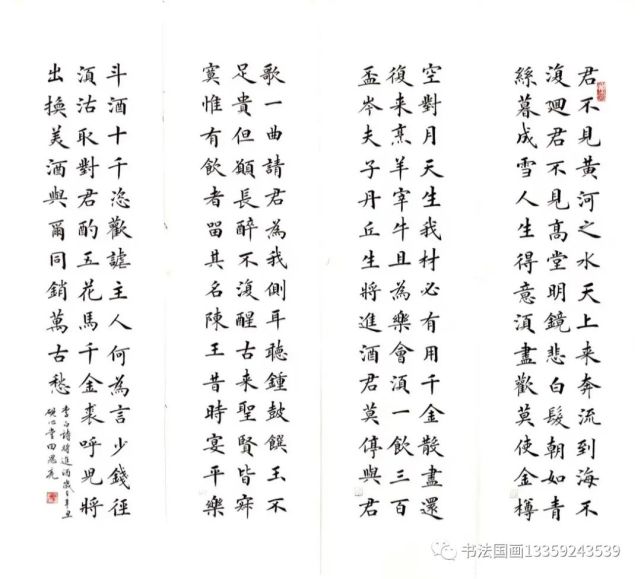 君不見黃河之水天上来奔流到海不
復迴君不見高堂明鏡悲白髮朝如青
絲暮成雪人生得意須盡歡莫使金樽
空對月天生我材必有用千金散盡還
復来烹羊宰牛且為樂會須一飲三百
盃岑夫子丹丘生將進酒君莫停與君
歌一曲請君為我側耳聽鍾鼓饌玉不
足貴但願長醉不復醒古来聖賢皆寂
寞惟有飲者留其名陳王昔時宴平樂
斗酒十千恣歡謔主人何為言少錢徑
須沽取對君酌五花馬千金裘呼兒將
出換美酒與爾同銷萬古愁
李白詩將進酒歲辛丑
心堂田
书法国画13359243539